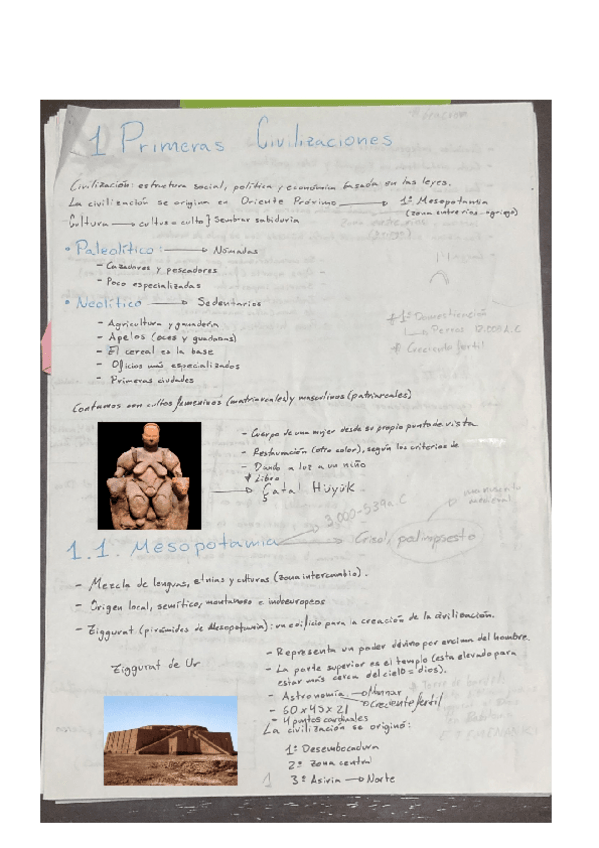 1 Primeras Civilizaciones
Civilización: estructura social, política y económica basada en las leyes.
La civilización se origina en Oriente Próximo → 1º Mesopotamia
(zona entre ríos - griego)
Cultura → cultus = culto } Sembrar sabiduría
• Paleolítico: → Nómadas
- Cazadores y pescadores
- Poco especializadas
• Neolítico → Sedentarios
- Agricultura y ganadería
- Apelos (oces y guadañas)
- El cereal es la base
- Oficios más especializados
- Primeras ciudades
* 1º Domesticación
→ Perros
* Creciente fertil
Contamos con cultos femeninos (matriarcales) y masculinos (patriarcales)
- Cuerpo de una mujer desde su propio punto de vista
- Restauración (otro color), según los criterios de
- Dando a luz a un niño
* Libro
→ Çatal Hüyük
1.1. Mesopotamia
3.000-539 a.C
→ Crisol, palimpsesto
- Mezcla de lenguas, etnias y culturas (zona intercambio).
- Origen local, semítico, montañoso e indoeuropeos
- Ziggurat (pirámides de Mesopotamia): un edificio para la creación de la civilización.
Ziggurat de Ur
- Representa un poder divino por encima del hombre.
- La parte superior es el templo (esta elevado para
estar más cerca del cielo = dios).
- Astronomía
→ Creciente fertil
- 60 x 45 x 21
- 4 puntos cardinales
La civilización se originó:
1º Desembocadura
2º Zona central
3º Asiria → Norte
1